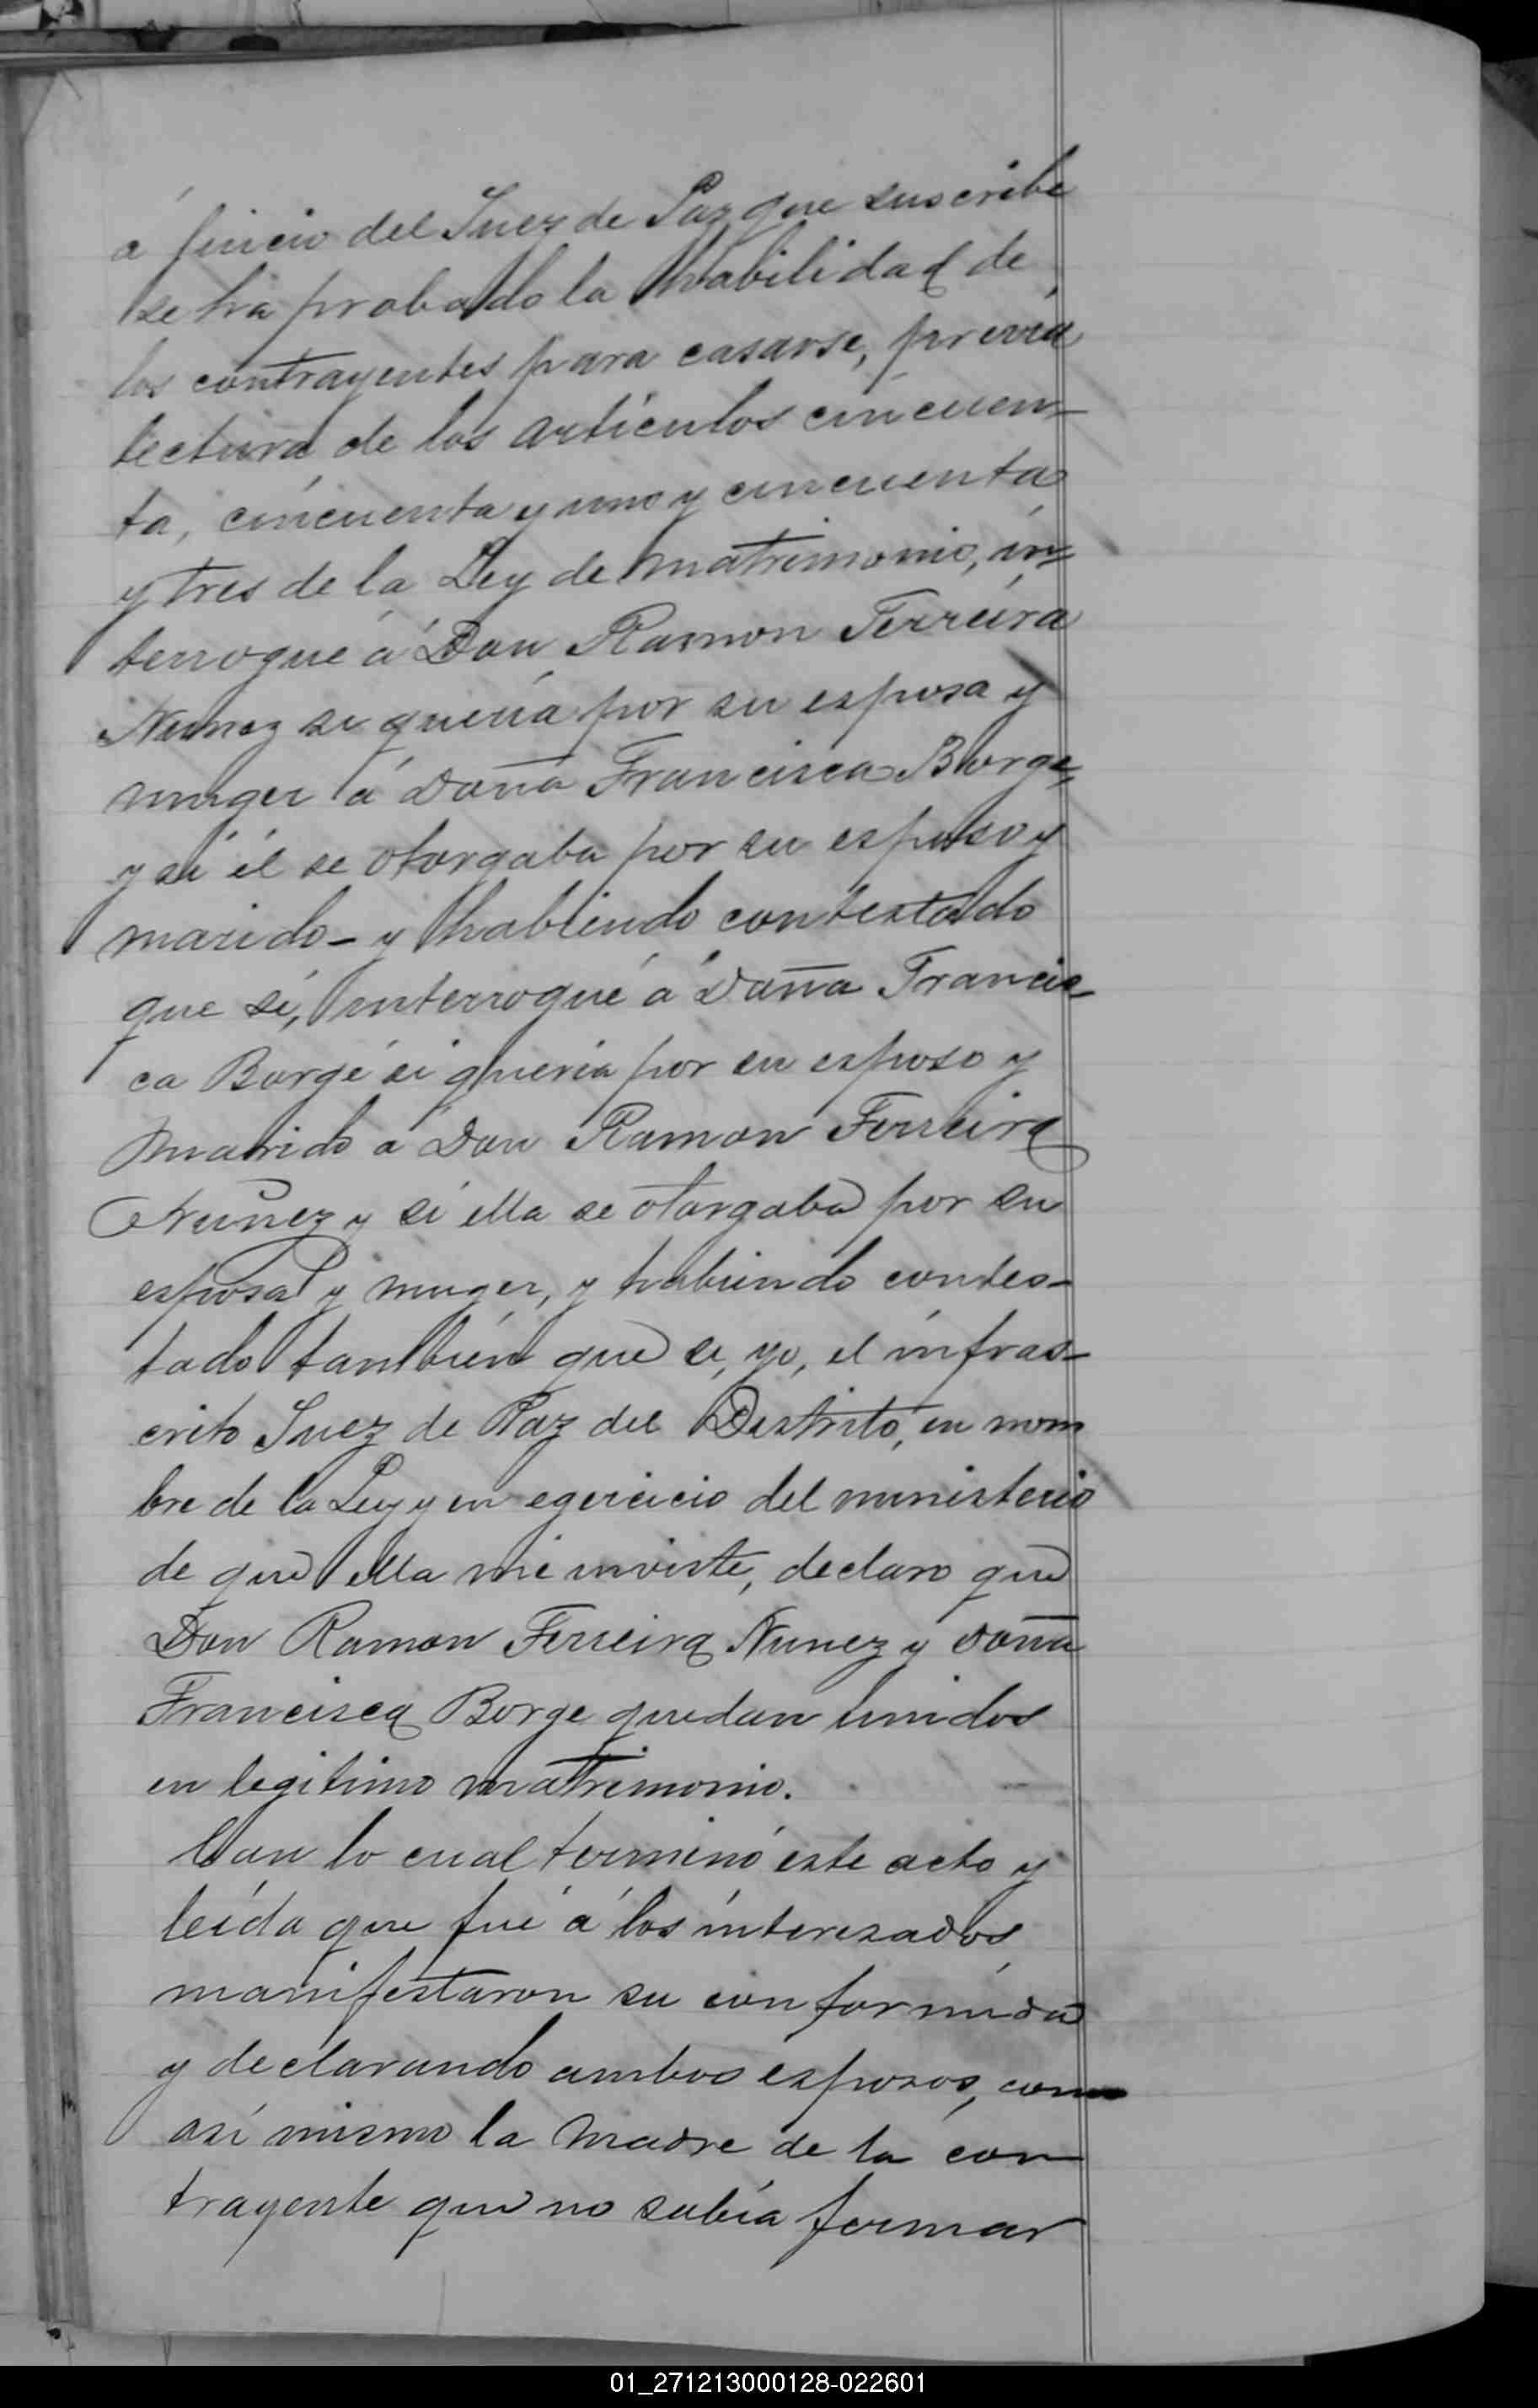 á juicio del Juez de Paz que suscribe
se ha probado la habilidad de
los contrayentes para casarse, previa
lectura de los artículos cincuen-
ta, cincuenta y uno y cincuenta
y tres de la Ley de Matrimonio, in-
terrogué á Don Ramon Ferreira
Nunez si quería por su esposa y
muger á Doña Francisca Borge,
y si él se otorgaba por su esposo y
marido - y habiendo contestado
que sí, interrogué á Doña Francis-
ca Borge si quería por su esposo y
marido á Don Ramon Ferreira
Nuñez y si ella se otorgaba por su
esposa y muger, y habiendo contes-
tado también que si, yo, el infras-
crito Juez de Paz del Distrito, en nom
bre de la Ley y en egercicio del ministerio
de que ella me inviste, declaro que
Don Ramon Ferreira Nunez y Doña
Francisca Borge quedan unidos
en legitimo matrimonio.
Con lo cual terminó este acto y
leída que fué á los interesados
manifestaron su conformida
y declarando ambos esposos, como
así mismo la madre de la con
trayente que no sabía formar
01_271213000128-022601